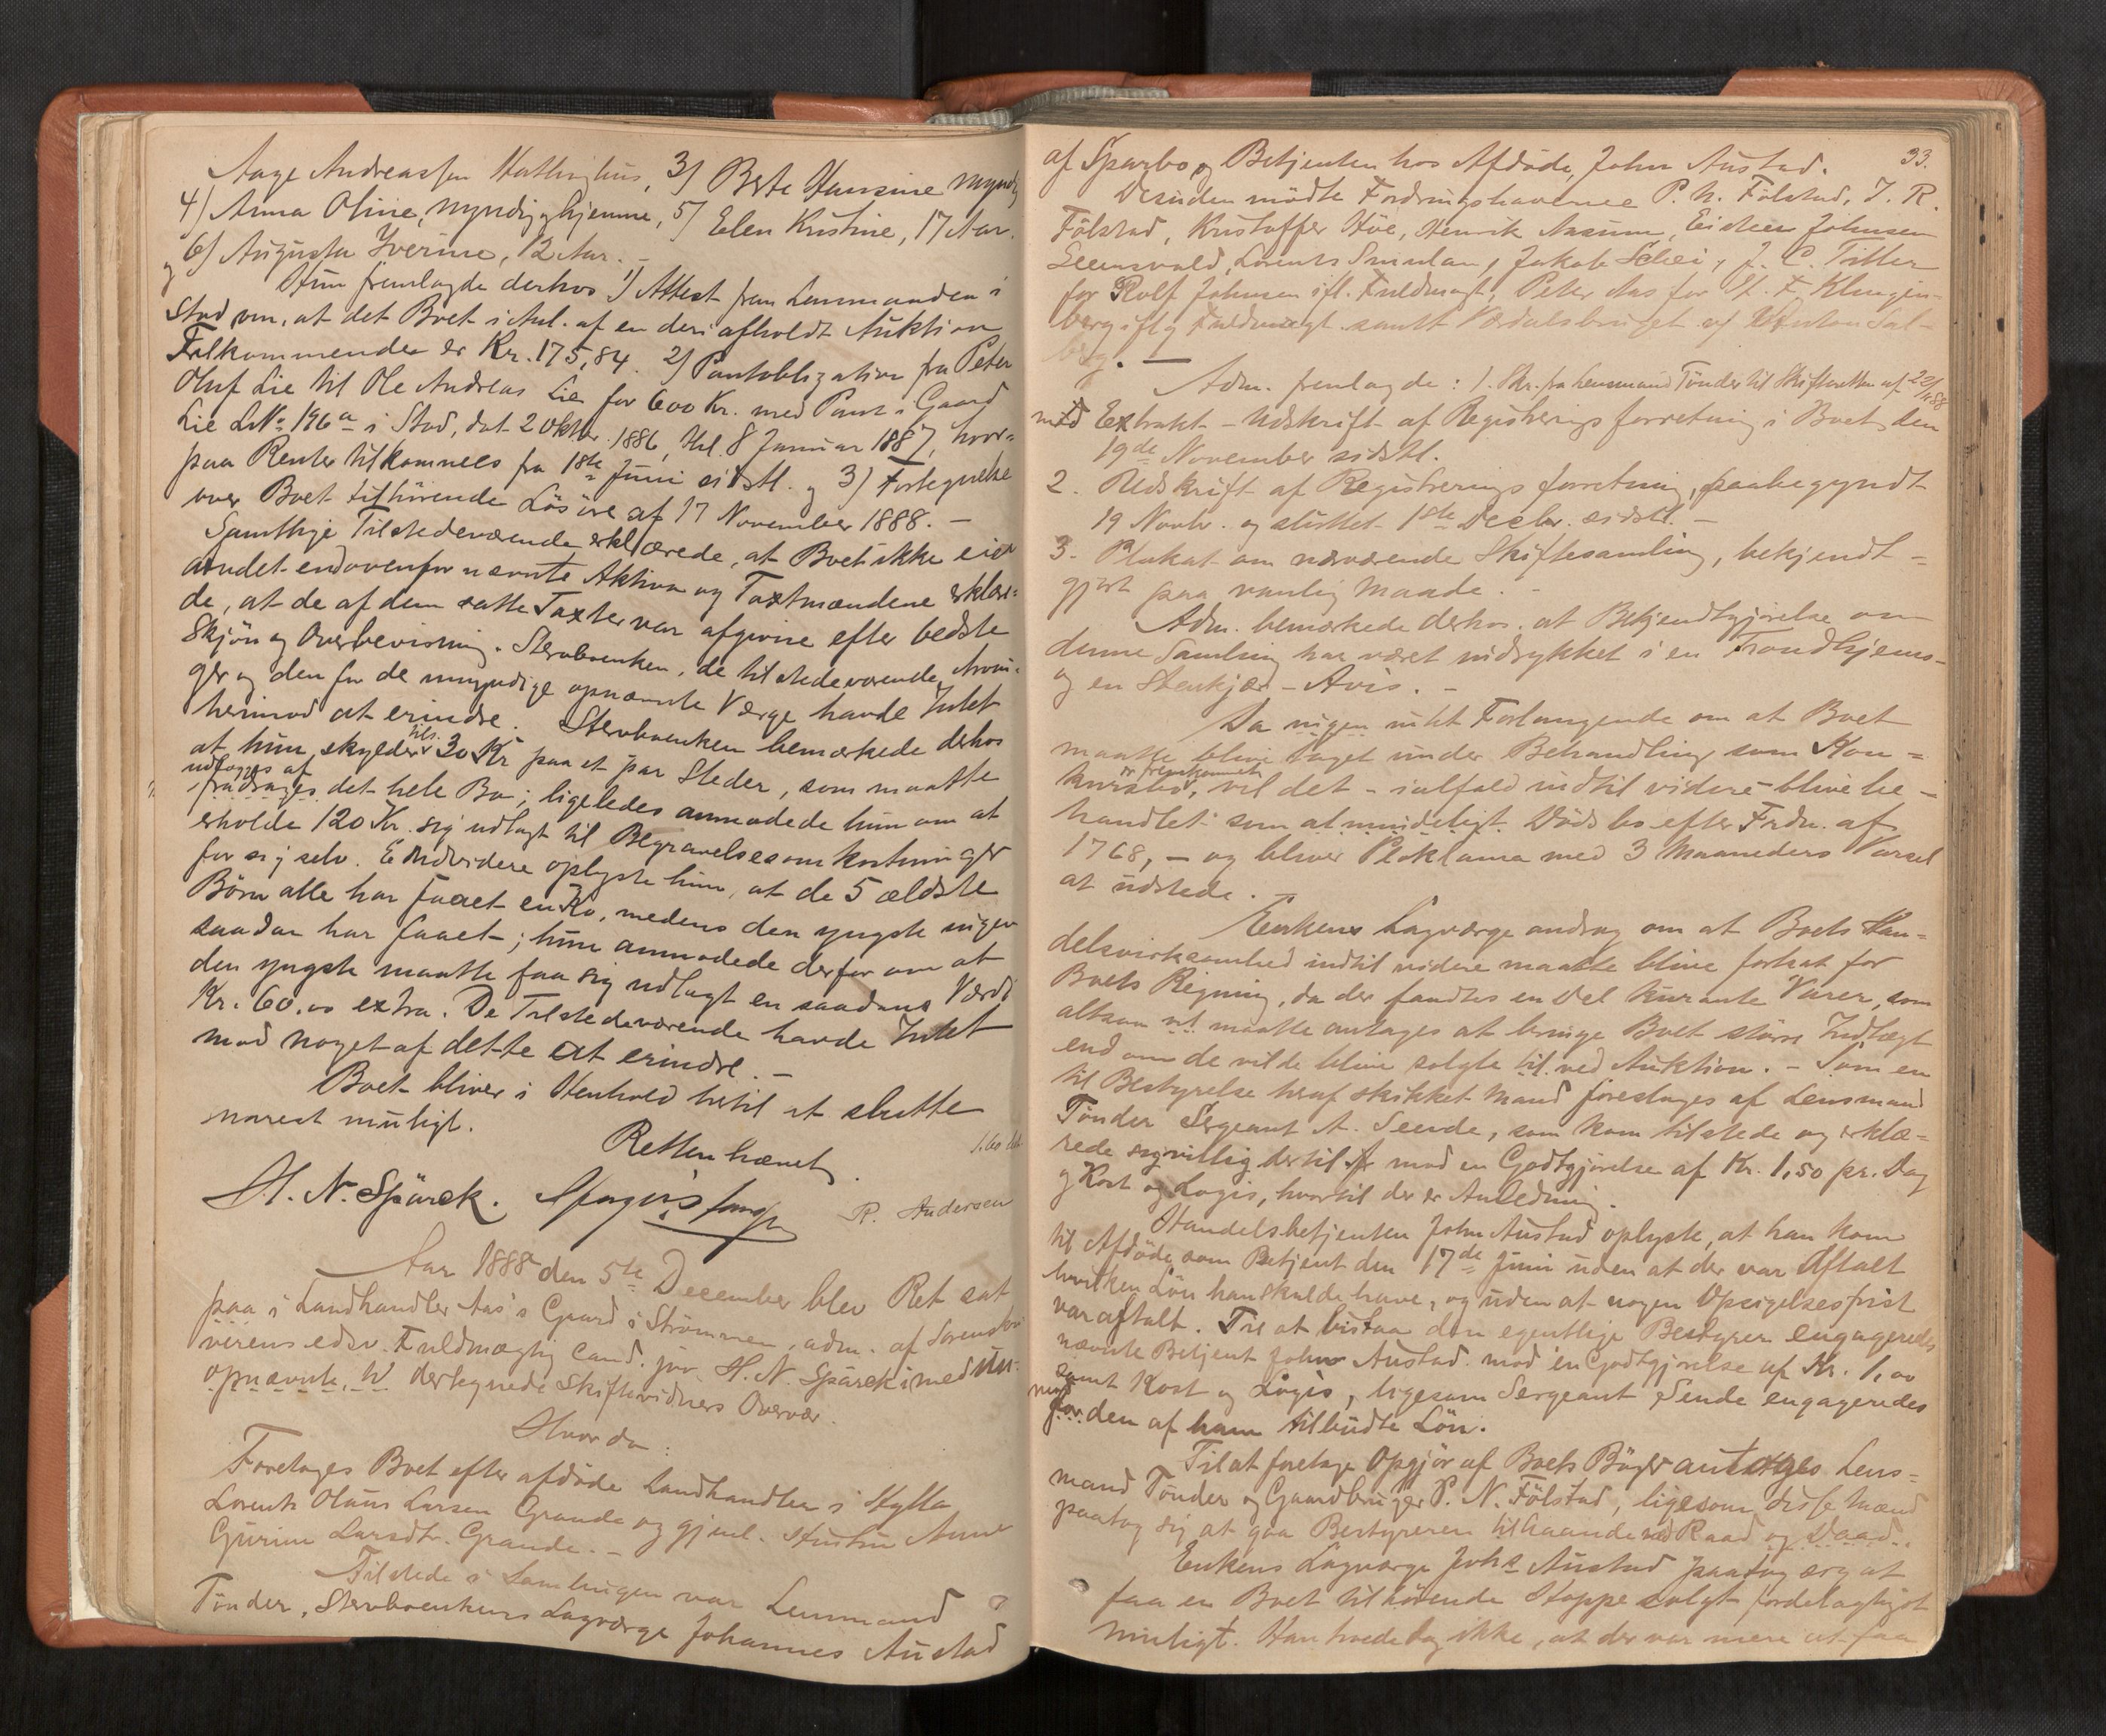 Aage Andreassen Hallinghus, 3) Berte Hansine myndig
4) Anna Oline, myndig og hjemme, 5) Elen Kristine, 17 Aar.
og 6) Augusta Iverine, 12 Aar. –
Hun fremlagde derhos 1) Attest fra Lensmanden i
Stod om, at det Boet i Anl. af en deri afholdt Auktion
Tilkommende er Kr. 175,84. 2) Pantobligation fra Peter
Oluf Lie til Ole Andreas Lie for 600 Kr. med Pant i Gaard
Lie L№ 196a i Stod, dat. 2 Oktbr. 1886, thl. 8 Januar 1887, hvor-
paa Renter tilkommes fra 1ste Juni sidstl. og 3) Fortegnelse
over Boet tilhörende Lösöre af 17 November 1888. –
Samtlige Tilstedeværende erklærede, at Boet ikke eier
andet end ovenfor nævnte Aktiva og Taxtmændene erklære-
de, at de af dem satte Taxter var afgivne efter bedste
Skjön og Overbevisning. Stervboenken, de tilstedeværende Arvin-
ger og den for de umyndige opnævnte Værge havde Intet
herimod at erindre. Stervboenken bemærkede derhos
at hun skylder tils. 30 Kr paa et par Steder, som maatte
udlægges af
fradrages det hele Bo; ligeledes anmodede hun om at
erholde 120 Kr. sig udlagt til Begravelsesomkostninger
for sig selv. Endvidere oplyste hun, at de 5 ældste
Börn alle har faaet en Ko, medens den yngste ingen
saadan har faaet; hun anmodede derfor om at
den yngste maatte faa sig udlagt en saadans Værdi
Kr. 60.00 extra. De Tilstedeværende havde Intet
mod noget af dette at erindre. –
Boet bliver i Henhold hertil at slutte
snarest muligt.
Retten hævet
H. N. Spärck. R. Andersen
Aar 1888 den 5te December blev Ret sat
paa i Landhandler Aas's Gaard i Strömmen, adm. af Sorenskri
verens edsv. Fuldmægtig Cand. jur. H. N. Spärck i med
opnævnte, W dertegnede Skiftevidners Overvær.
Hvor da:
Foretoges Boet efter afdöde Landhandler i Hylla
Lorents Olaus Larsen Grande og gjenl. Hustru Anne
Gurine Larsdtr. Grande. –
Tilstede i Samlingen var Lensmand
Tönder, Stervboenkens Lagværge Johannes Austad
33.
af Sparbo og Betjenten hos Afdöde, John Austad.
Desuden mödte Fordringshaverne P. N. Fölstad, J. R.
Fölstad, Kristoffer Höe, Henrik Aasum, Johnsen
Lorents Smulan, Jakob Schei, J. C. Titter
for Rolf Johnsen ifl. Fuldmagt, Peter Aas for H. F. Klingen-
berg iflg Fuldmagt samt Værdalsbruget v/ Anton Sal-
berg. –
Adm. fremlagde: 1. Skr. fra Lensmand Tönder til Skifteretten af 22/11 88
med Extrakt-Udskrift af Registreringsforretning i Boet, den
19de November sidstl.
2. Udskrift af Registreringsforretning, paabegyndt
19 Novbr. og sluttet 1ste Decbr. sidstl. –
3. Plakat om nærværende Skiftesamling, bekjendt-
gjort paa vanlig Maade. –
Adm. bemærkede derhos, at Bekjendtgjörelse om
denne Samling har været indrykket i en Trondhjems-
og en Stenkjær-Avis. –
Da ingen Forlangende om at Boet
maatte blive taget under Behandling som Kon-
er fremkommet
kursbo, vil det – ialfald indtil videre – blive be-
handlet som almindeligt Dödsbo efter Frdn. af
1768, – og bliver Proklama med 3 Maaneders Varsel
at udstede. –
Enkens Lagværge androg om at Boets Han-
delsvirksomhed indtil videre maatte blive fortsat for
Boets Regning, da der fandtes en Del kurante Varer, som
altsaa maatte antages at bringe Boet större Indtægt
end om de vilde blive solgte til ved Auktion. – Som en
til Bestyrelse heraf skikket Mand foresloges af Lensmand
Tönder Sergeant A. Seende, som kom tilstede og erklæ-
rede sig villig dertil mod en Godtgjörelse af Kr. 1,50 pr. Dag
og Kost og Logis, hvortil der er Anledning.
Handelsbetjenten John Austad oplyste, at han kom
til Afdöde som Betjent den 17de Juni uden at der var Aftalt
hvilken Lön han skulde have, og uden at nogen Opsigelsesfrist
var aftalt. Til at bistaa den egentlige Bestyrer engageredes
nævnte Betjent John Austad mod en Godtgjörelse af Kr. 1,00
samt Kost og Logis, ligesom Sergeant Seende engageredes
mod
for den af ham tilbudte Lön.
Til at foretage Opgjör af Boets Böger antoges Lens-
mand Tönder og Gaardbruger P. N. Fölstad, ligesom disse Mænd
paatog sig at gaa Bestyreren tilhaande med Raad og Daad.
Enkens Lagværge Johs Austad paatog sig at
faa en Boet tilhörende Hoppe solgt fordelagtigst
muligt. Han troede dog ikke, at der var mere at faa